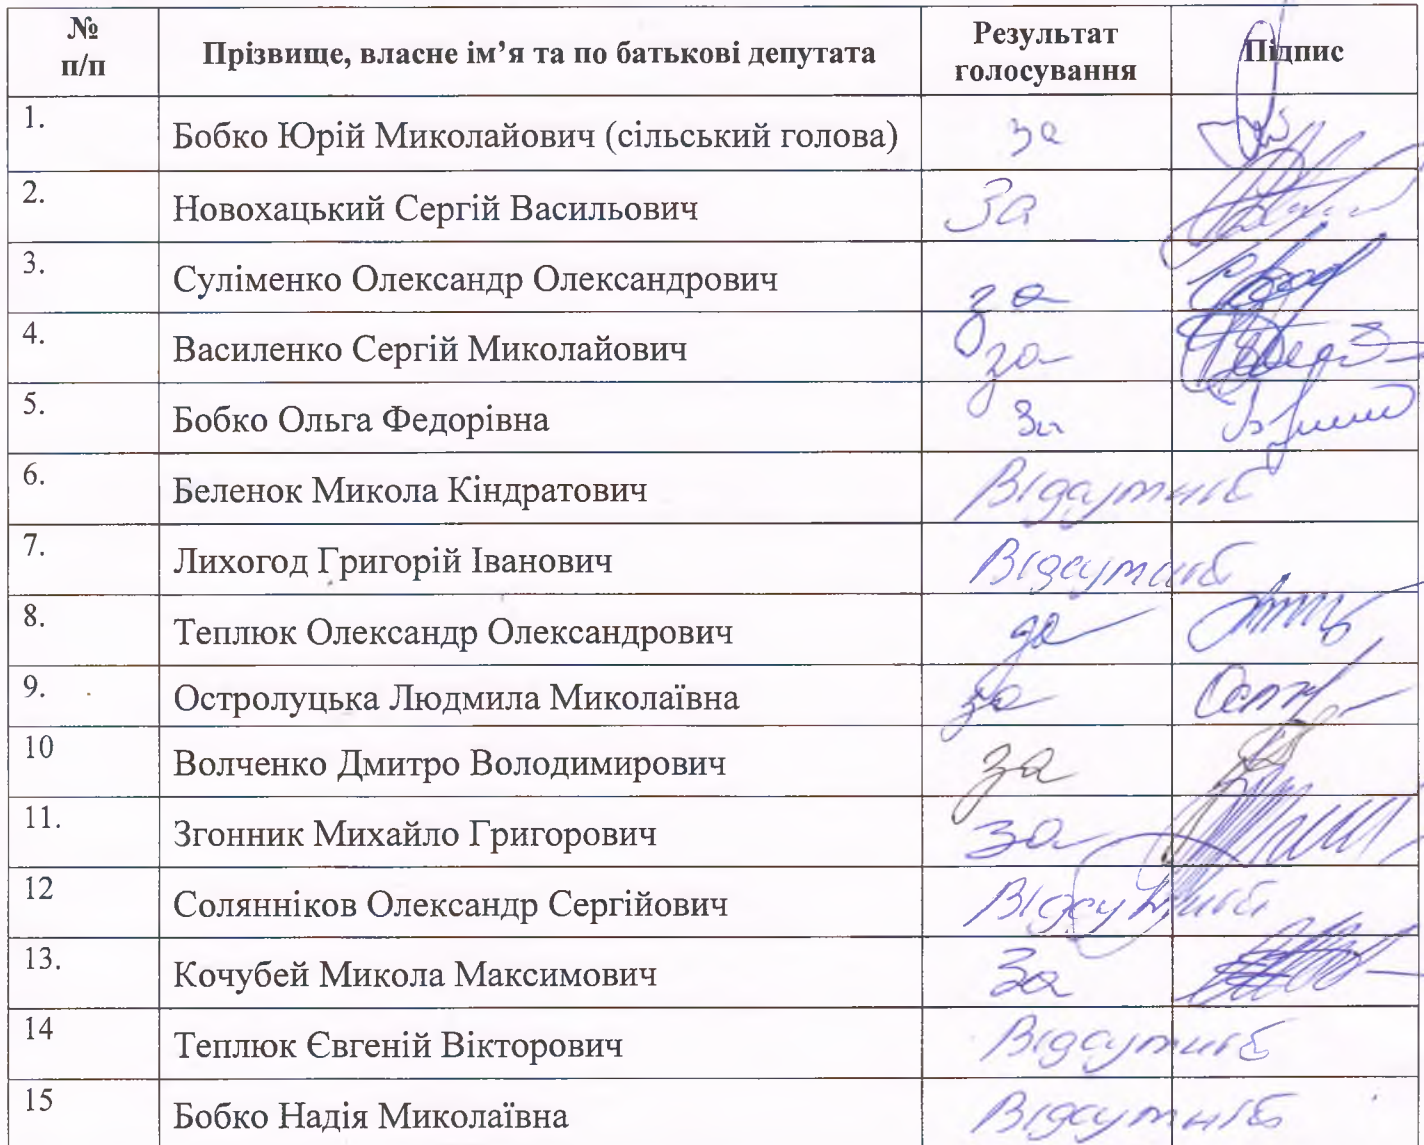 № п/п Прізвище, власне ім’я та по батькові депутата Результат голосування Підпис
1. Бобко Юрій Миколайович (сільський голова) за
2. Новохацький Сергій Васильович За
3. Суліменко Олександр Олександрович за
4. Василенко Сергій Миколайович за
5. Бобко Ольга Федорівна За
6. Беленок Микола Кіндратович Відсутній
7. Лихогод Григорій Іванович Відсутній
8. Теплюк Олександр Олександрович за
9. Остролуцька Людмила Миколаївна за
10 Волченко Дмитро Володимирович за
11. Згонник Михайло Григорович за
12 Солянніков Олександр Сергійович Відсутній
13. Кочубей Микола Максимович За
14 Теплюк Євгеній Вікторович Відсутній
15 Бобко Надія Миколаївна Відсутній